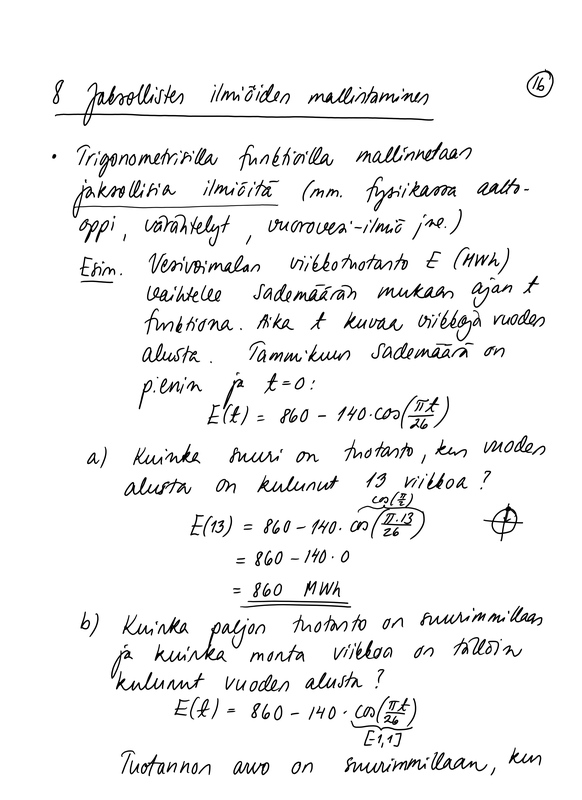 16
8 Jaksollisten ilmiöiden mallintaminen
• Trigonometrisilla funktioilla mallinnetaan
jaksollisia ilmiöitä (mm. fysiikassa aalto-
oppi, värähtelyt, vuorovesi-ilmiö jne.)
Esim. Vesivoimalan viikkotuotanto E (MWh)
vaihtelee sademäärän mukaan ajan t
funktiona. Aika t kuvaa viikkoja vuoden
alusta. Tammikuun sademäärä on
pienin ja t=0:
E(t) = 860 - 140·cos(πt/26)
a) Kuinka suuri on tuotanto, kun vuoden
alusta on kulunut 13 viikkoa?
cos(π/2)
E(13) = 860 - 140·cos(π·13/26)
= 860 - 140·0
= 860 MWh
b) Kuinka paljon tuotanto on suurimmillaan
ja kuinka monta viikkoa on tällöin
kulunut vuoden alusta?
E(t) = 860 - 140·cos(πt/26)
[-1,1]
Tuotannon arvo on suurimmillaan, kun